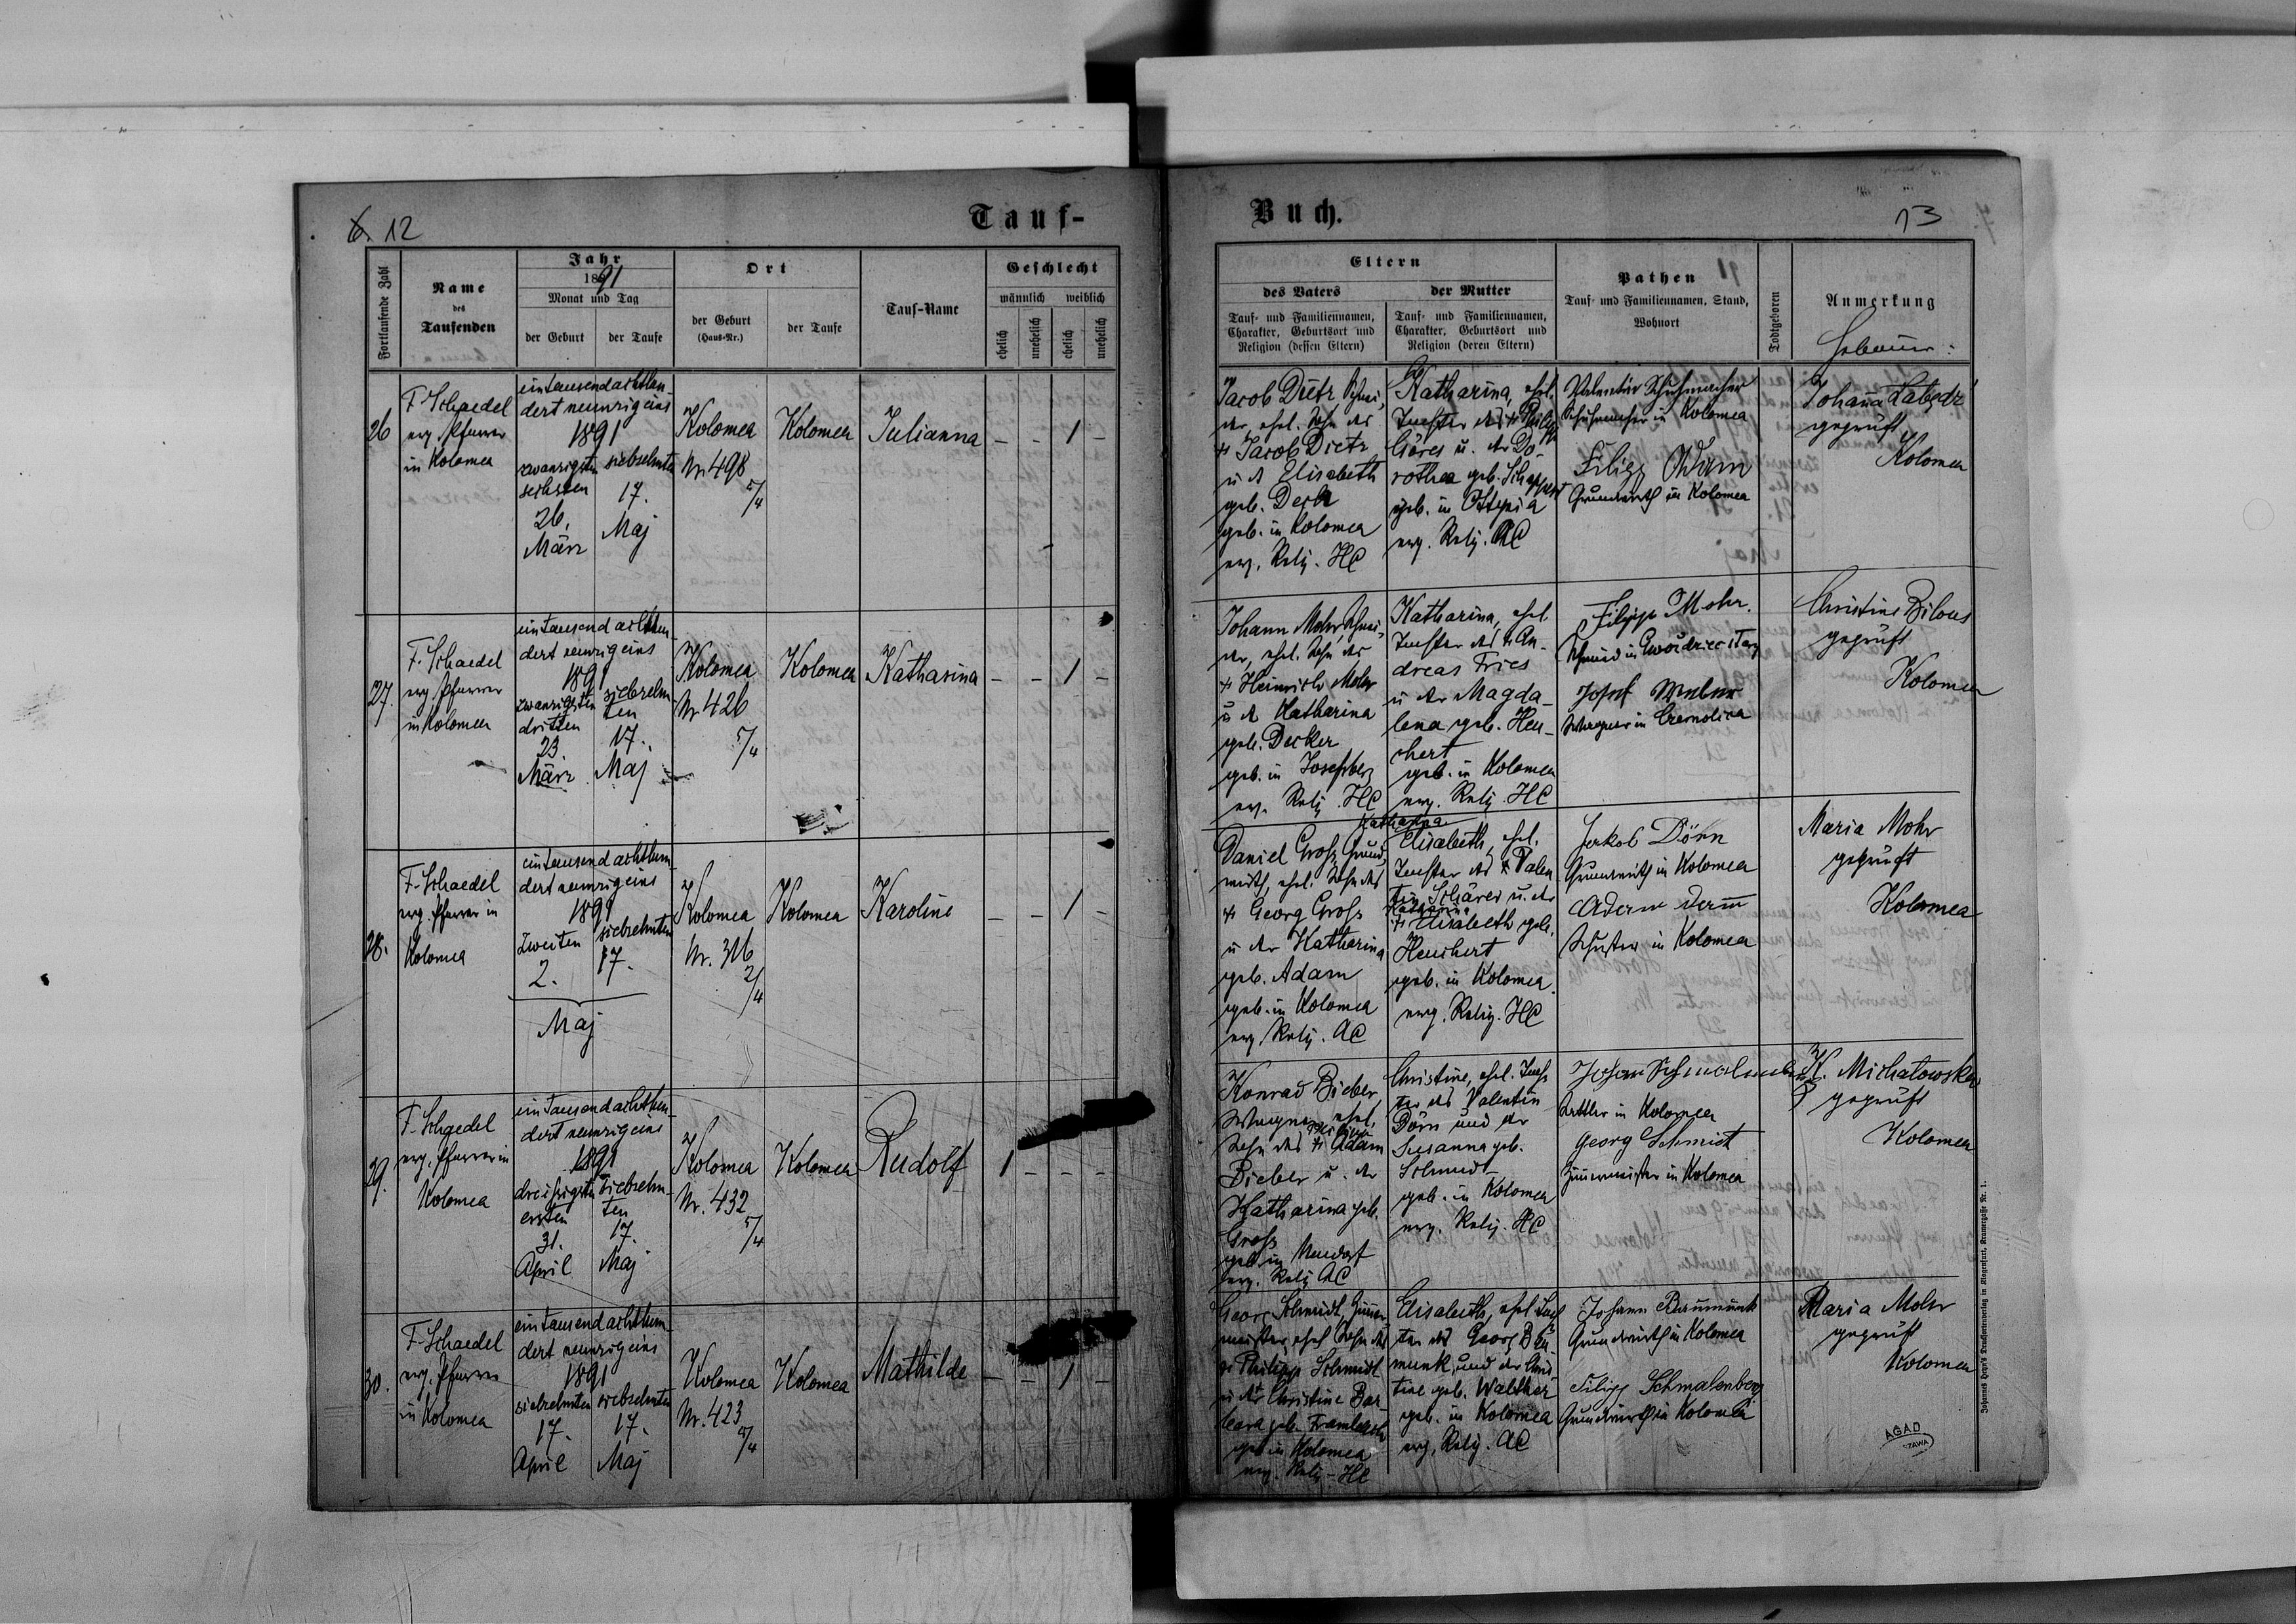 6. 12
Tauf-
Fortlaufende Zahl
Name
des
Taufenden
Jahr
1891
Monat und Tag
der Geburt
der Taufe
Ort
der Geburt
(Haus-Nr.)
der Taufe
Tauf-Name
Geschlecht
männlich
weiblich
ehelich
unehelich
ehelich
unehelich
26
F. Schaedel
evg. Pfarrer
in Kolomea
eintausendachthun-
dert neunzigeins
1891
zwanzigsten
sechsten
26.
März
siebzehnten
17.
Maj
Kolomea
Nr. 498
5/4
Kolomea
Julianna
- - 1 -
27.
F. Schaedel
evg. Pfarrer
in Kolomea
eintausend achthun-
dert neunzigeins
1891
zwanzigsten
dritten
23.
März
siebzehn-
ten
17.
Maj
Kolomea
Nr 426
5/4
Kolomea
Katharina
- - 1 -
28.
F. Schaedel
evg. Pfarrer in
Kolomea
eintausend achthun-
dert neunzigeins
1891
zweiten
2.
siebzehnten
17.
Maj
Kolomea
Nr. 316
2/4
Kolomea
Karoline
- - 1 -
29.
F. Schaedel
evg. Pfarrer in
Kolomea
eintausend achthun-
dert neunzigeins
1891
dreißigsten
ersten
31.
April
siebzehn-
ten
17.
Maj
Kolomea
Nr. 432
5/4
Kolomea
Rudolf
1 - - -
30.
F. Schaedel
evg. Pfarrer
in Kolomea
eintausend achthun-
dert neunzigeins
1891
siebzehnten
17.
April
siebzehnten
17.
Maj
Kolomea
Nr. 423
5/4
Kolomea
Mathilde
- - 1 -
Buch.
13
Eltern
des Vaters
Tauf- und Familiennamen,
Charakter, Geburtsort und
Religion (dessen Eltern)
der Mutter
Tauf- und Familiennamen,
Charakter, Geburtsort und
Religion (deren Eltern)
Pathen
Tauf- und Familiennamen, Stand,
Wohnort
Todtgeboren
Anmerkung
Hebamme:
Jacob Dietz Schnei-
der, ehel. Sohn des
+ Jacob Dietz
u. d. Elisabeth
geb.
geb. in Kolomea
evg. Relig. HC
Katharina, ehel.
Tochter des + Philipp
Göres u. der Do-
rothea geb.
geb. in
evg. Relig. AC
Valentin Schuhmacher
Schuhmacher in Kolomea
Filipp Adam
Grundwirth in Kolomea
Johanna Łabędz
geprüft
Kolomea
Johann Mohr, Schnei-
der, ehel. Sohn des
+ Heinrich Mohr
u. d. Katharina
geb. Decker
geb. in Josefsberg
evg. Relig. HC
Katharina, ehel.
Tochter des + An-
dreas Fries
u. der Magda-
lena geb. Heu-
chert
geb. in Kolomea
evg. Relig. HC
Filipp Mohr.
Schmied in
Josef
Wagner in
Christine Bilous
geprüft
Kolomea
Daniel Groß, Grund-
wirth, ehel. Sohn des
+ Georg Groß
u. der Katharina
geb. Adam
geb. in Kolomea
evg. Relig. AC
Katharina
Elisabeth, ehel.
Tochter des + Valen-
tin Schärer u. der
Katharina
+ Elisabeth geb.
Heuchert
geb. in Kolomea
evg. Relig. HC
Jakob Dörn
Grundwirth in Kolomea
Adam
Schuster in Kolomea
Maria Mohr
geprüft
Kolomea
Konrad Bieber,
Wagner, ehel.
Sohn des + Adam
Bieber u. der
Katharina geb.
Groß
geb. in Neudorf
evg. Relig. AC
Christine, ehel. Toch-
ter des Valentin
Dörn und der
Susanna geb.
Schmidt
geb. in Kolomea
evg. Relig. HC
Johann Schmalenberg
Sattler in Kolomea
Georg Schmidt
Zimmermeister in Kolomea
K. Michałowska
geprüft
Kolomea
Georg Schmidt, Zimmer-
meister, ehel. Sohn des
+ Philipp Schmidt
u. der Christine Bar-
bara geb.
geb. in Kolomea
evg. Relig. HC
Elisabeth, ehel. Toch-
ter des Georg Bau-
munk und der Chris-
tine geb. Walther
geb. in Kolomea
evg. Relig. AC
Johann Baumunk
Grundwirth in Kolomea
Filipp Schmalenberg
Grundwirth in Kolomea
Maria Mohr
geprüft
Kolomea
Johannes Heyn's Drucksortenverlag in Klagenfurt, Kramergasse Nr. 1.
AGAD